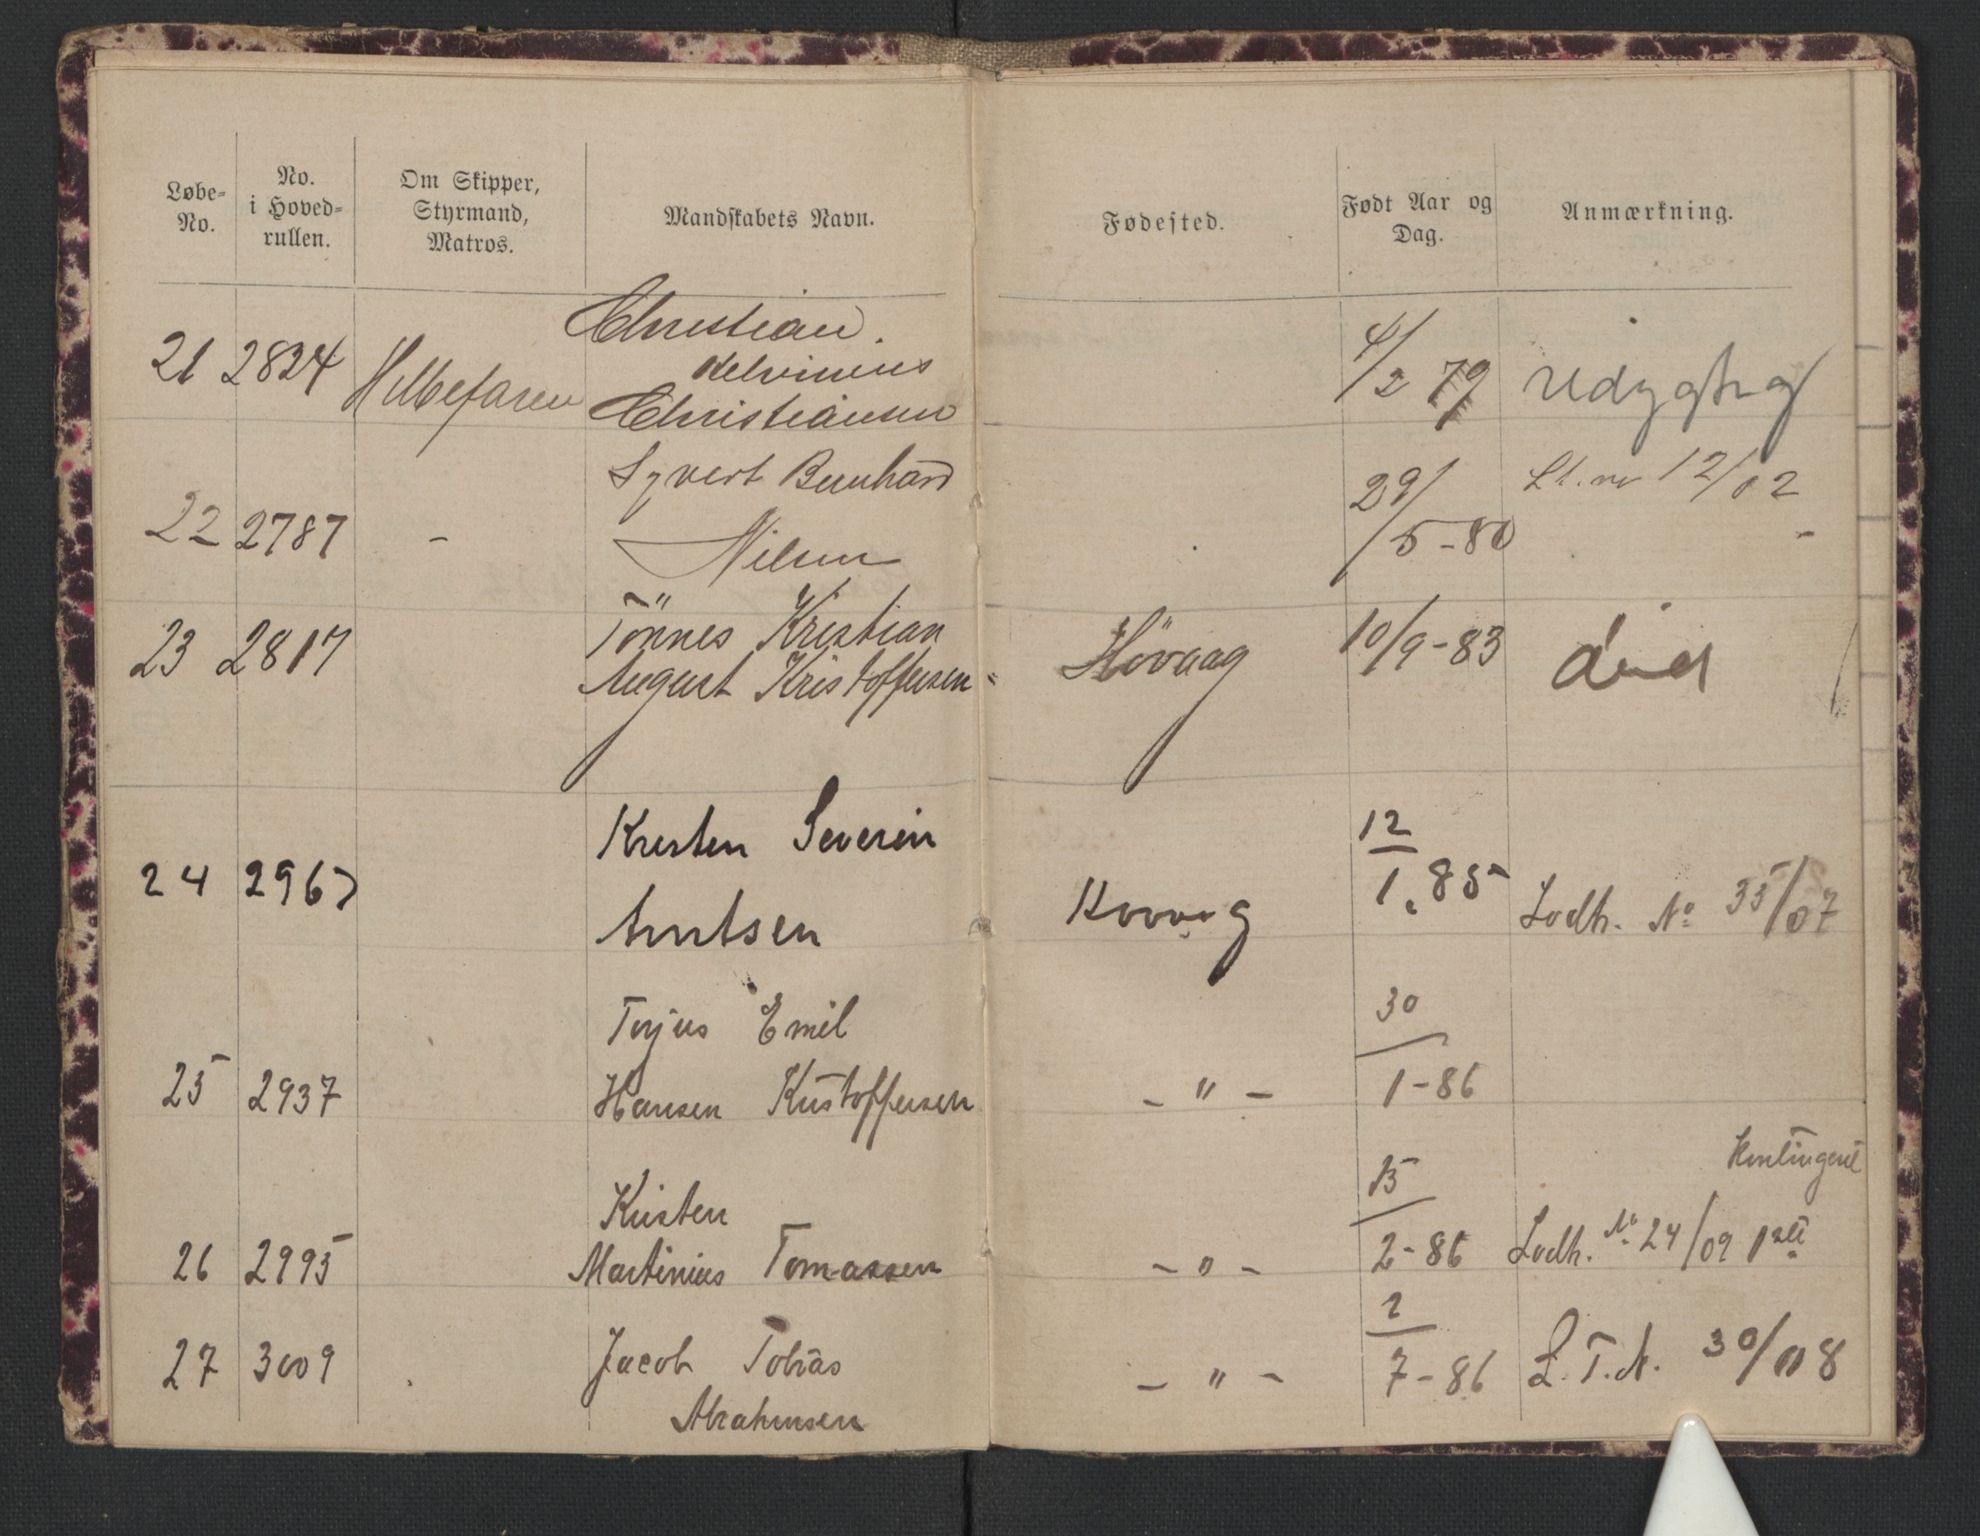 Løbe-
No.
No.
i Hoved-
rullen.
Om Skipper,
Styrmand,
Matros.
Mandskabets Navn.
Fødested.
Født Aar og
Dag.
Anmærkning.
Christian
21 2824 Christiansen 4/2 79 Udygtig
Syvert Bernhard
22 2787 - Nilsen 29/5-80 12/02
Tönnes Kristian
23 2817 August Kristoffersen Hövaag 10/9-83 död
Kristen Severin
24 2967 Arntsen Hovaag 12/1.85 Lodtr. No 35/07
Torjus Emil
25 2937 Hansen Kristoffersen - " - 30/1-86
Kontingent
Kristen
26 2995 Martinius Tomassen - " - 15/2-86 Lodtr. No 24/09
27 3009 Jacob Tobias - " - 2/7-86 L.T.N. 30/08
Abrahmsen